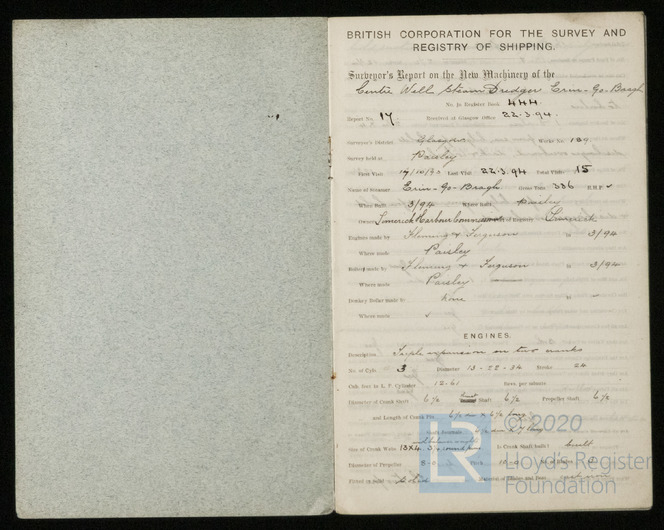 BRITISH CORPORATION FOR THE SURVEY AND
REGISTRY OF SHIPPING.
Surveyor's Report on the New Machinery of the
Centre Well Steam Dredger Erin-Go-Bragh
No. in Register Book 444.
Report No. 17 Received at Glasgow Office 22.3.94.
Surveyor's District Glasgow Works No. 189
Survey held at Paisley
First Visit Last Visit 22.3.94 Total Visits 15
Name of Steamer Erin-Go-Bragh Gross Tons 336 N.H.P.
When Built 3/94 Where Built Paisley
Owners Limerick Harbour Port of Registry Limerick
Engines made by Fleming & Ferguson in 3/94
Where made Paisley
Boilers made by Fleming & Ferguson in 3/94
Where made Paisley
Donkey Boiler made by None in
Where made
ENGINES.
Description Triple expansion on two cranks
No. of Cyls. 3 Diameter 13-22-34 Stroke 24
Cub. feet in L. P. Cylinder 12.61 Revs. per minute
Diameter of Crank Shaft 6½ Shaft 6½ Propeller Shaft 6½
and Length of Crank Pin
Size of Crank Webs Is Crank Shaft built? built
Diameter of Propeller Pitch No. of Blades
Fitted or solid
© 2020
LR
Lloyd's Register
Foundation